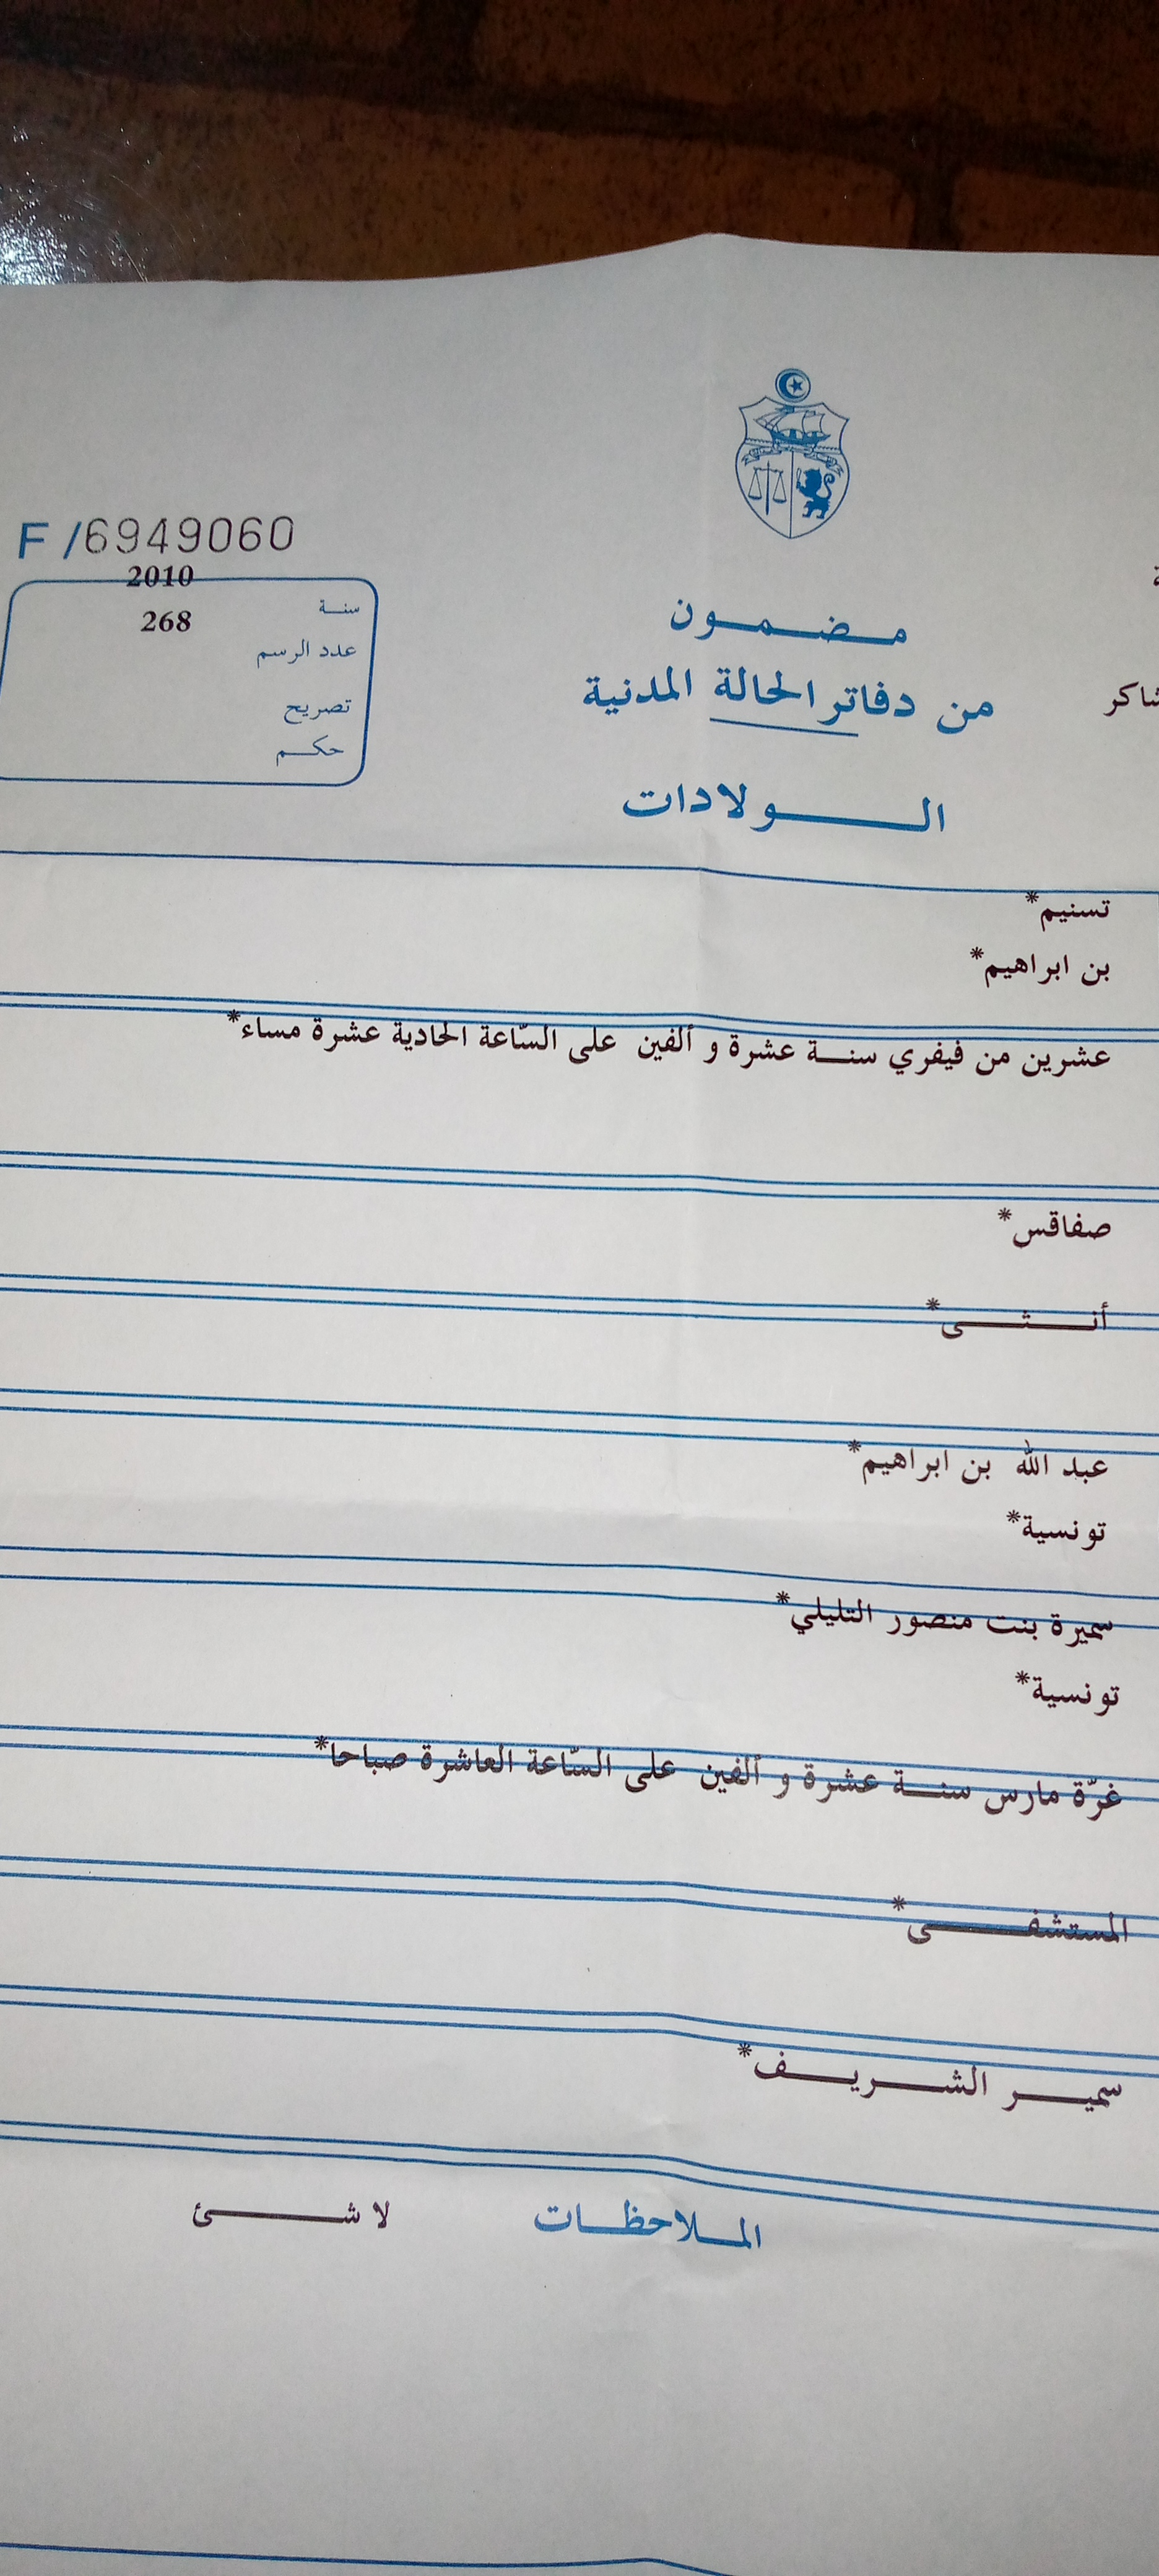 F /6949060
2010
سنة
268
عدد الرسم
تصريح
حكم
مضمون
من دفاتر الحالة المدنية
الولادات
شاكر
تسنيم*
بن ابراهيم*
عشرين من فيفري سنة عشرة و ألفين على السّاعة الحادية عشرة مساء*
صفاقس*
أنثى*
عبد الله بن ابراهيم*
تونسية*
سميرة بنت منصور التليلي*
تونسية*
غرّة مارس سنة عشرة و ألفين على السّاعة العاشرة صباحا*
المستشفى*
سمير الشريف*
الملاحظات لا شئ